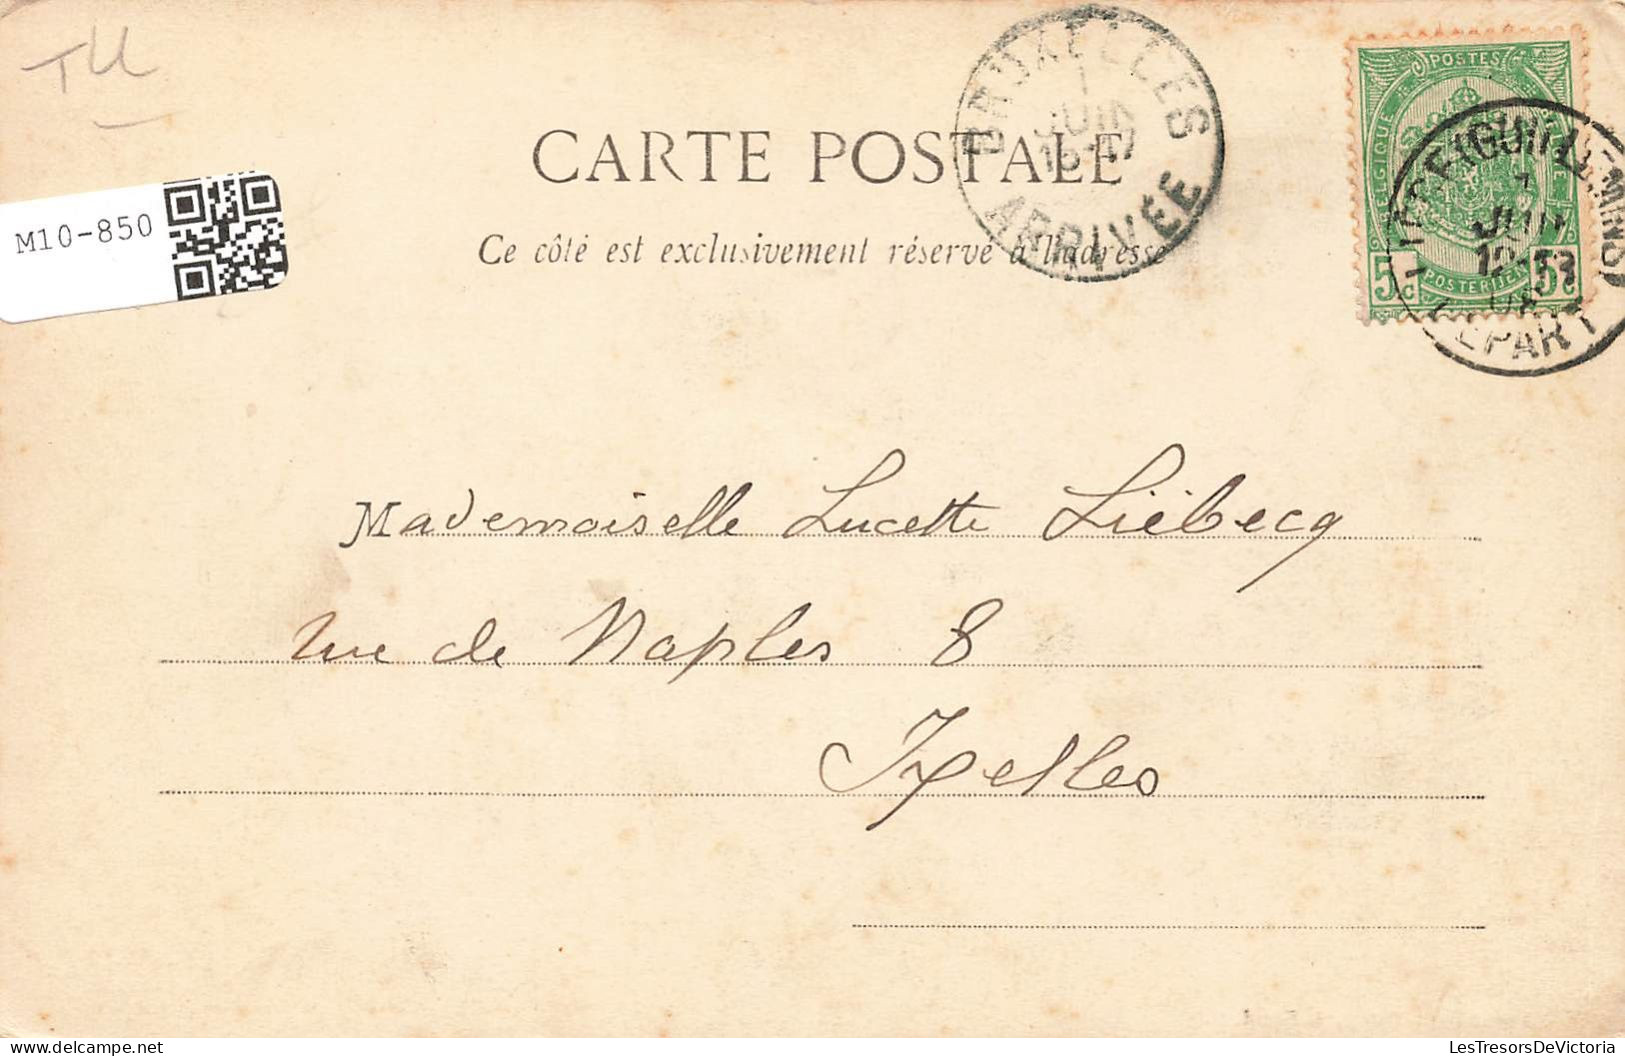 TU
M10-850
BRUXELLES
1
JUIN
ARRIVÉE
CARTE POSTALE
Ce côté est exclusivement réservé à l'adresse
POSTES
BELGIQUE
BELGIË
5 c
POSTERIJEN
5 c
(GUILLEMINS)
1
JUIN
DÉPART
Mademoiselle Lucette Liébecq
rue de Naples 8
Ixelles
LesTresorsDeVictoria